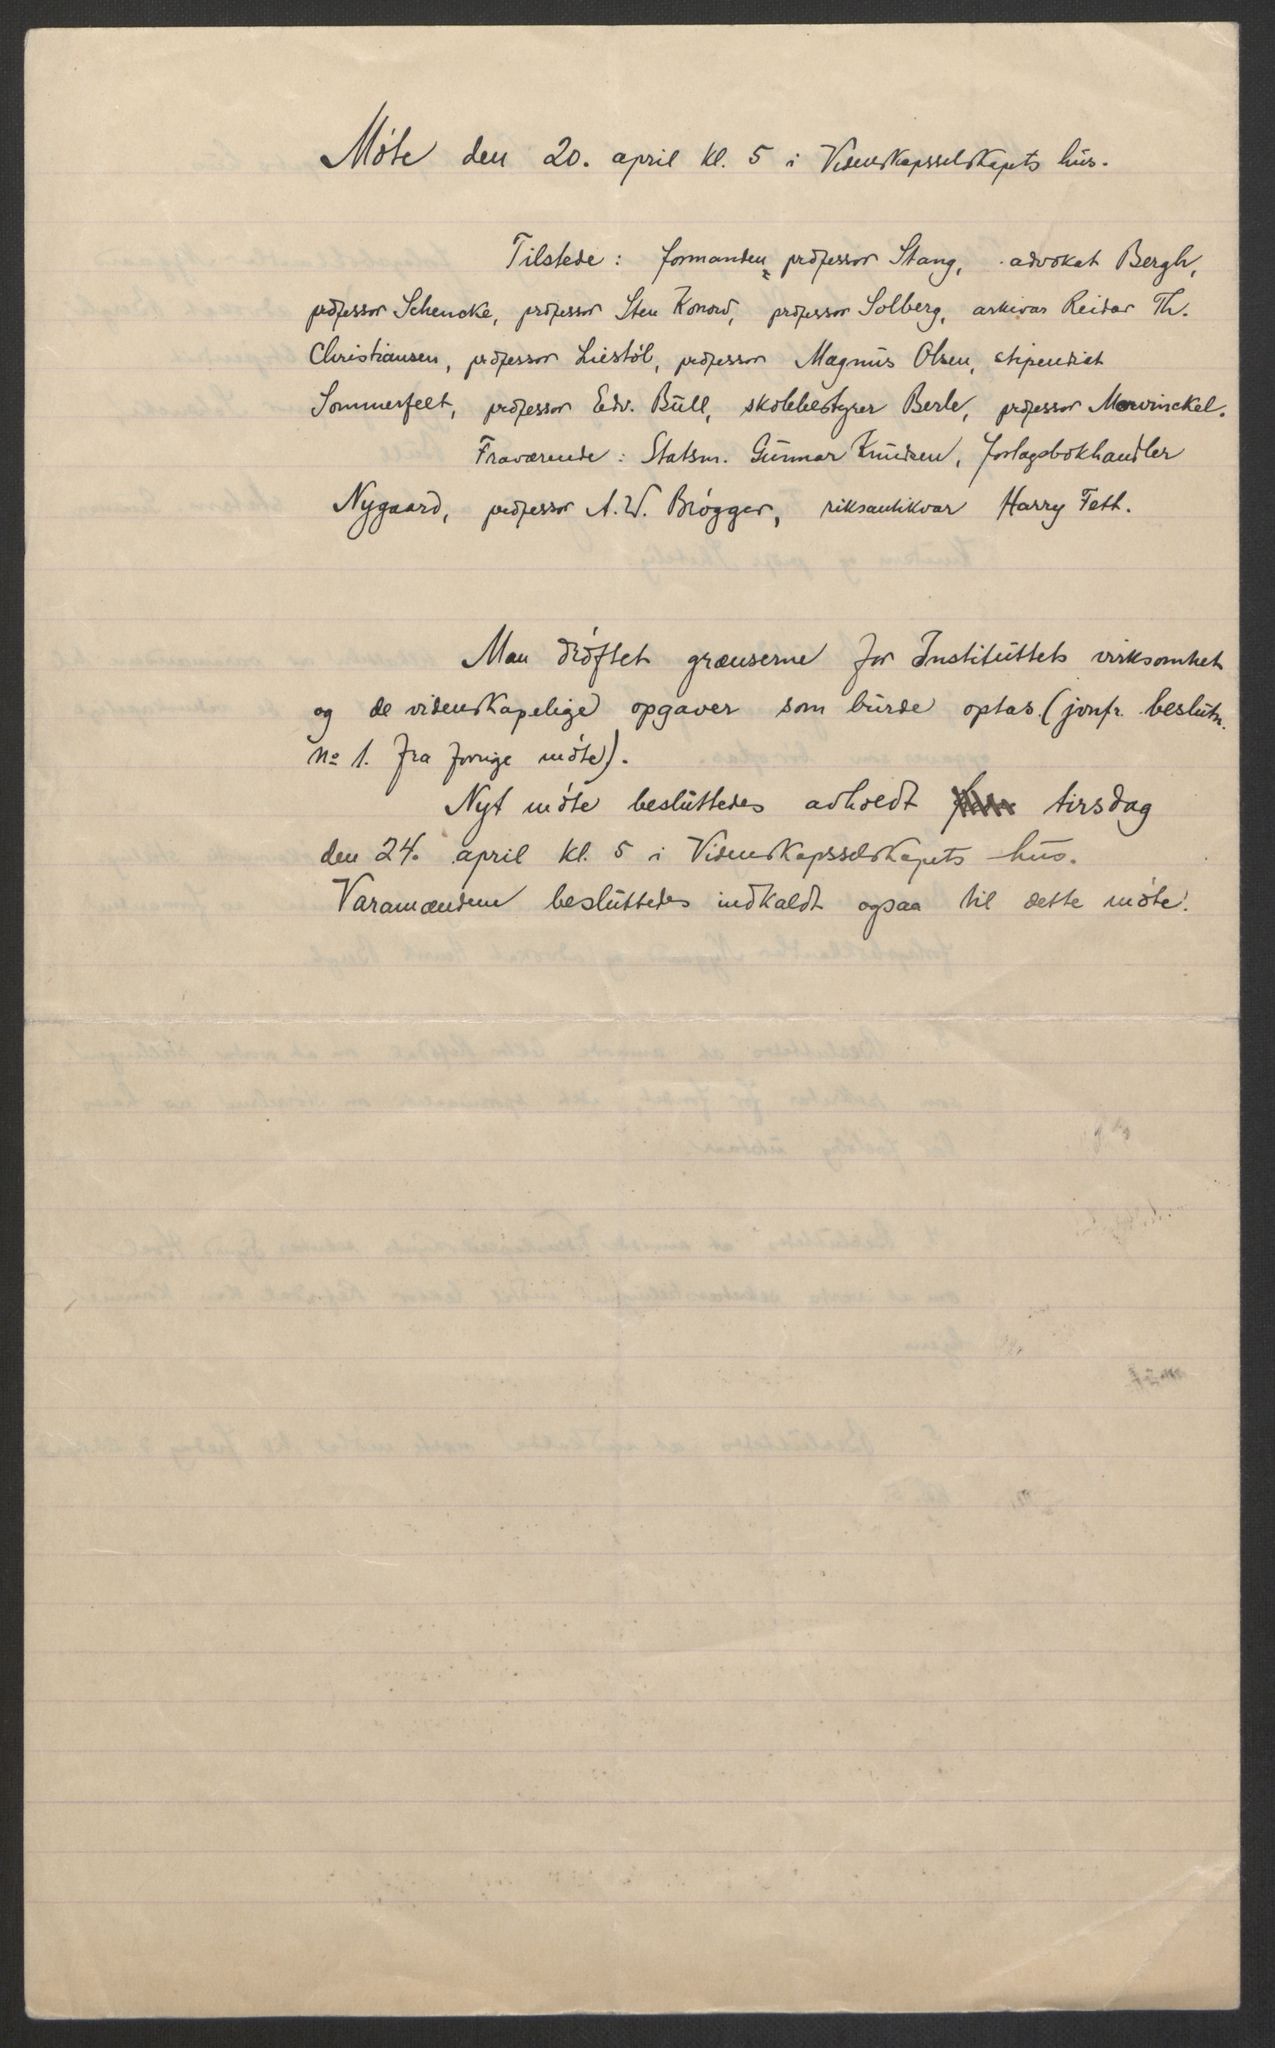 Møte den 20. april kl. 5 i Videnskapsselskapets hus.
Tilstede: formanden, professor Stang, advokat Bergh,
professor Schencke, professor Sten Konow, professor Solberg, arkivar Reidar Th.
Christiansen, professor Liestøl, professor Magnus Olsen, stipendiat
Sommerfelt, professor Edv. Bull, skolebestyrer Berle, professor Morvinckel.
Fraværende: Statsm. Gunnar Knudsen, forlagsbokhandler
Nygaard, professor A.W. Brøgger, riksantikvar Harry Fett.
Man drøftet grænserne for Instituttets virksomhet
og de videnskapelige opgaver som burde optas (jvnfr. beslutn.
No 1. fra forrige møte).
Nyt møte besluttedes avholdt tirsdag
den 24. april kl. 5 i Videnskapsselskapets hus.
Varamændene besluttedes indkaldt ogsaa til dette møte.